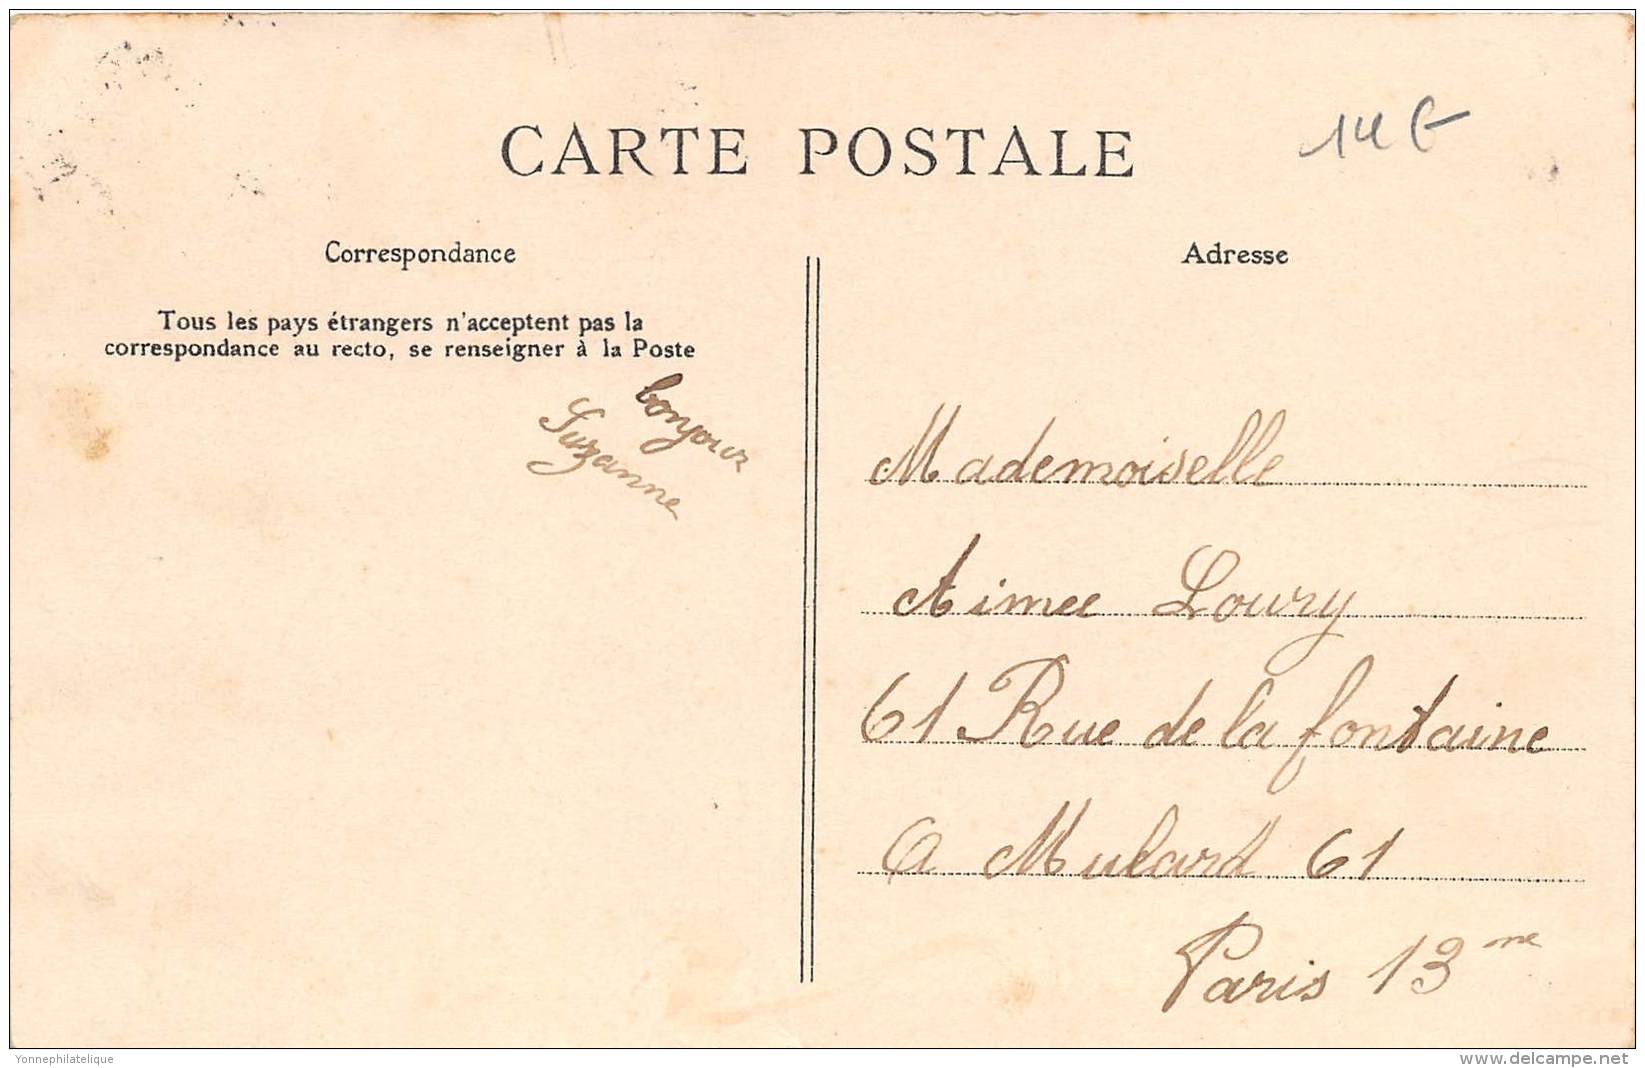 CARTE POSTALE
14€
Correspondance
Tous les pays étrangers n'acceptent pas la
correspondance au recto, se renseigner à la Poste
bonjour
Suzanne
Adresse
Mademoiselle
Aimee Loury
61 Rue de la fontaine
a Mulard 61
Paris 13me
Yonnephilatelique
www.delcampe.net